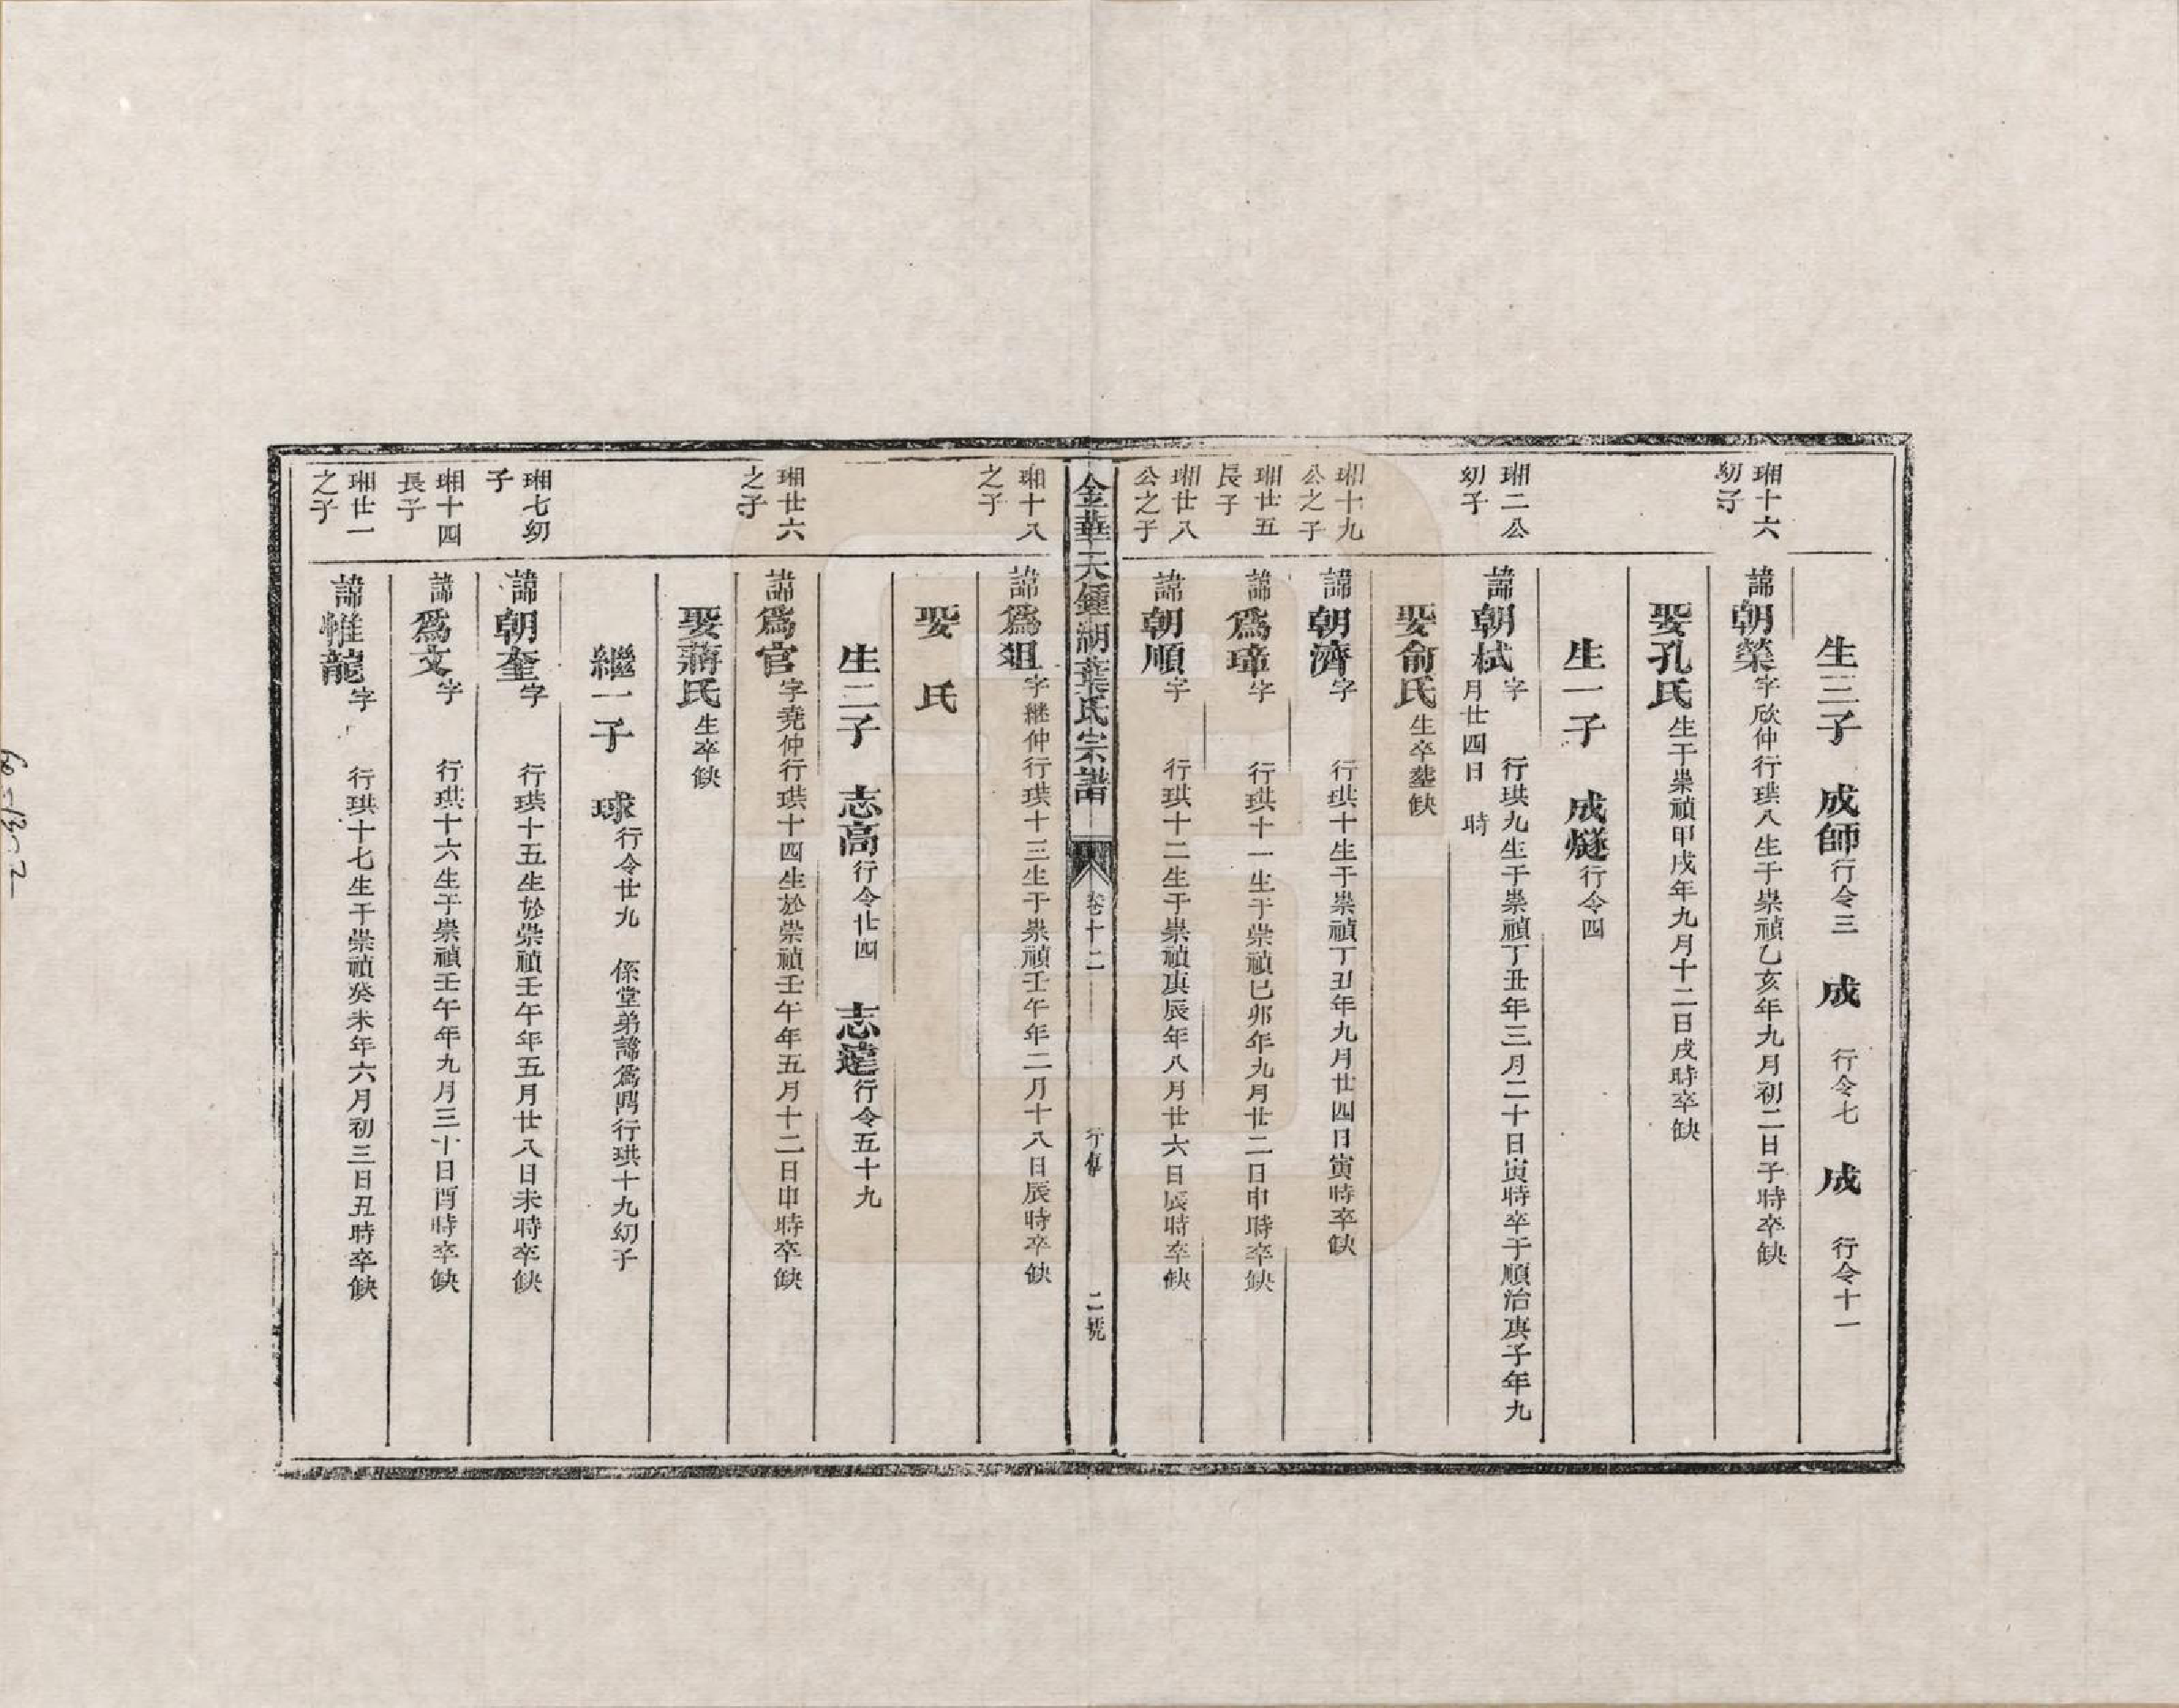 生三子 成師行令三 成 行令七 成 行令十一
瑚十六
幼子
諱朝榮字欣仲行珙八生于崇禎乙亥年九月初二日子時卒缺
娶孔氏生于崇禎甲戌年九月十二日戌時卒缺
生一子 成燧行令四
瑚二公
幼子
諱朝栻字 行珙九生于崇禎丁丑年三月二十日寅時卒于順治庚子年九
月廿四日 時
娶俞氏生卒塟缺
瑚十九
公之子
諱朝濟字 行珙十生于崇禎丁丑年九月廿四日寅時卒缺
瑚廿五
長子
諱爲璋字 行珙十一生于崇禎巳卯年九月廿二日申時卒缺
瑚廿八
公之子
諱朝順字 行珙十二生于崇禎庚辰年八月廿六日辰時卒缺
金華天鍾湖葉氏宗譜 卷十二 行傳 二號
瑚十八
之子
諱爲俎字繼仲行珙十三生于崇禎壬午年二月十八日辰時卒缺
娶 氏
生二子 志高行令廿四 志達行令五十九
瑚廿六
之子
諱爲官字堯仲行珙十四生於崇禎壬午年五月十二日申時卒缺
娶蔣氏生卒缺
繼一子 球行令廿九 係堂弟諱爲鳴行珙十九幼子
瑚七幼
子
諱朝奎字 行珙十五生於崇禎壬午年五月廿八日未時卒缺
瑚十四
長子
諱爲文字 行珙十六生于崇禎壬午年九月三十日酉時卒缺
瑚廿一
之子
諱惟龍字 行珙十七生于崇禎癸未年六月初三日丑時卒缺